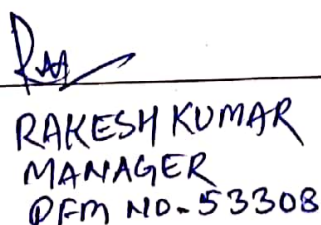 RAKESH KUMAR
MANAGER
PFM NO-53308